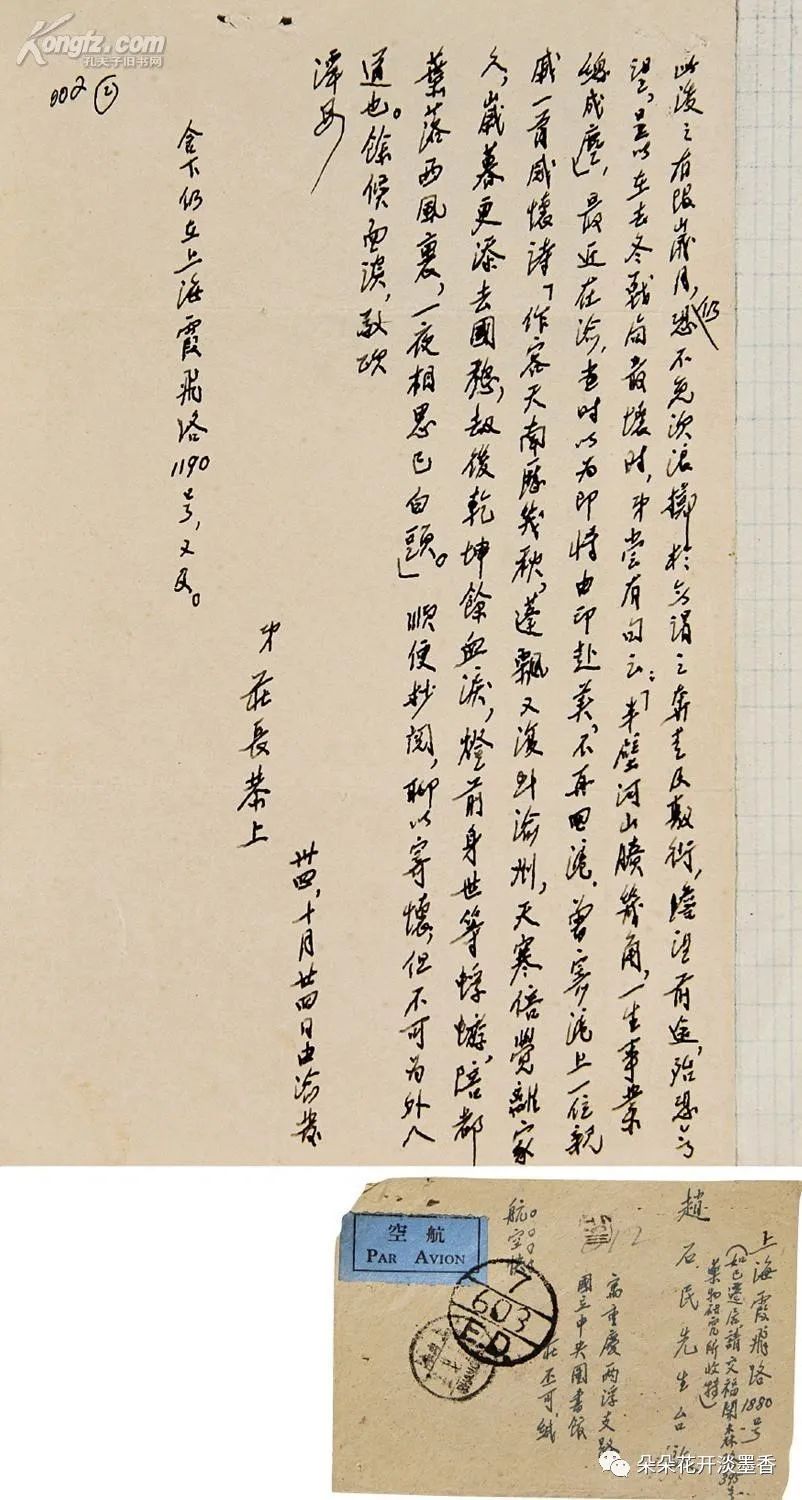 此后之有限歲月,恐仍不免浪擲於無謂之奔走及敷衍,瞻望前途,殆恐無
望,是以在去冬戰局最壞時,弟嘗有句云:「半壁河山賸幾角,一生事業
總成塵」,最近在渝,當時以為即將由印赴美,不再回滬,曾寄滬上一位親
戚一首感懷詩「作客天南歷幾秋,蓬飄又復到渝州,天寒倍覺離家
久,歲暮更添去國愁,劫後乾坤餘血淚,燈前身世等蜉蝣,陪都
葉落西風裏,一夜相思已白頭。」順便抄閱,聊以寄懷,但不可為外人
道也。餘候面談,敬頌
潭安
弟 莊長恭上
卅四,十月廿四日由渝發
舍下仍在上海霞飛路1190号,又及。
002 ②
Kongfz.com
孔夫子旧书网
上海霞飛路1880号
(如已遷居請交福開森路395号
藥物研究所收轉)
趙石民先生台
寄重慶兩浮支路
國立中央圖書館
莊丕可緘
航空快
航空
PAR AVION
7
603
E.D.
朵朵花开淡墨香